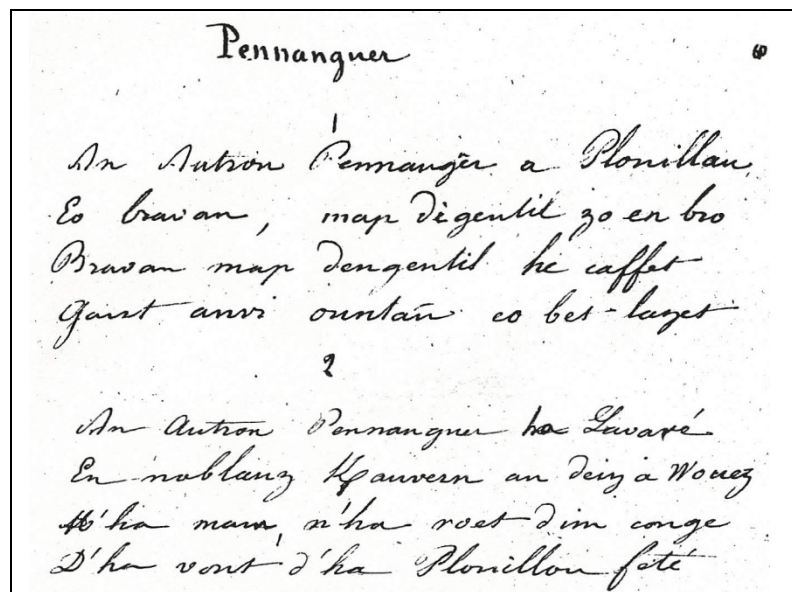 Pennanguer
1
An Autron Pennangŭer a Plouillau
Eo bravan, map digentil zo en bro
Bravan map dengentil he caffet
Gant anvi ountañ eo bet-lazet
2
An Autron Pennanguer ha Lavaré
En noblanz Kauvern an deiz a
H'ha mam, n'ha roet dim conge
D'ha vont d'ha Plouillau feté